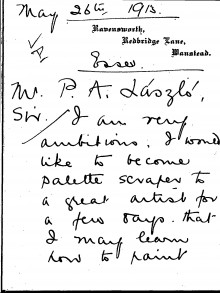 May 26th, 1913.
Ravensworth,
Redbridge Lane,
Wanstead.
Essex.
Mr. P. A. László,
Sir,
I am very
ambitious. I would
like to become
palette scraper to
a great artist for
a few days. that
I may learn
how to paint